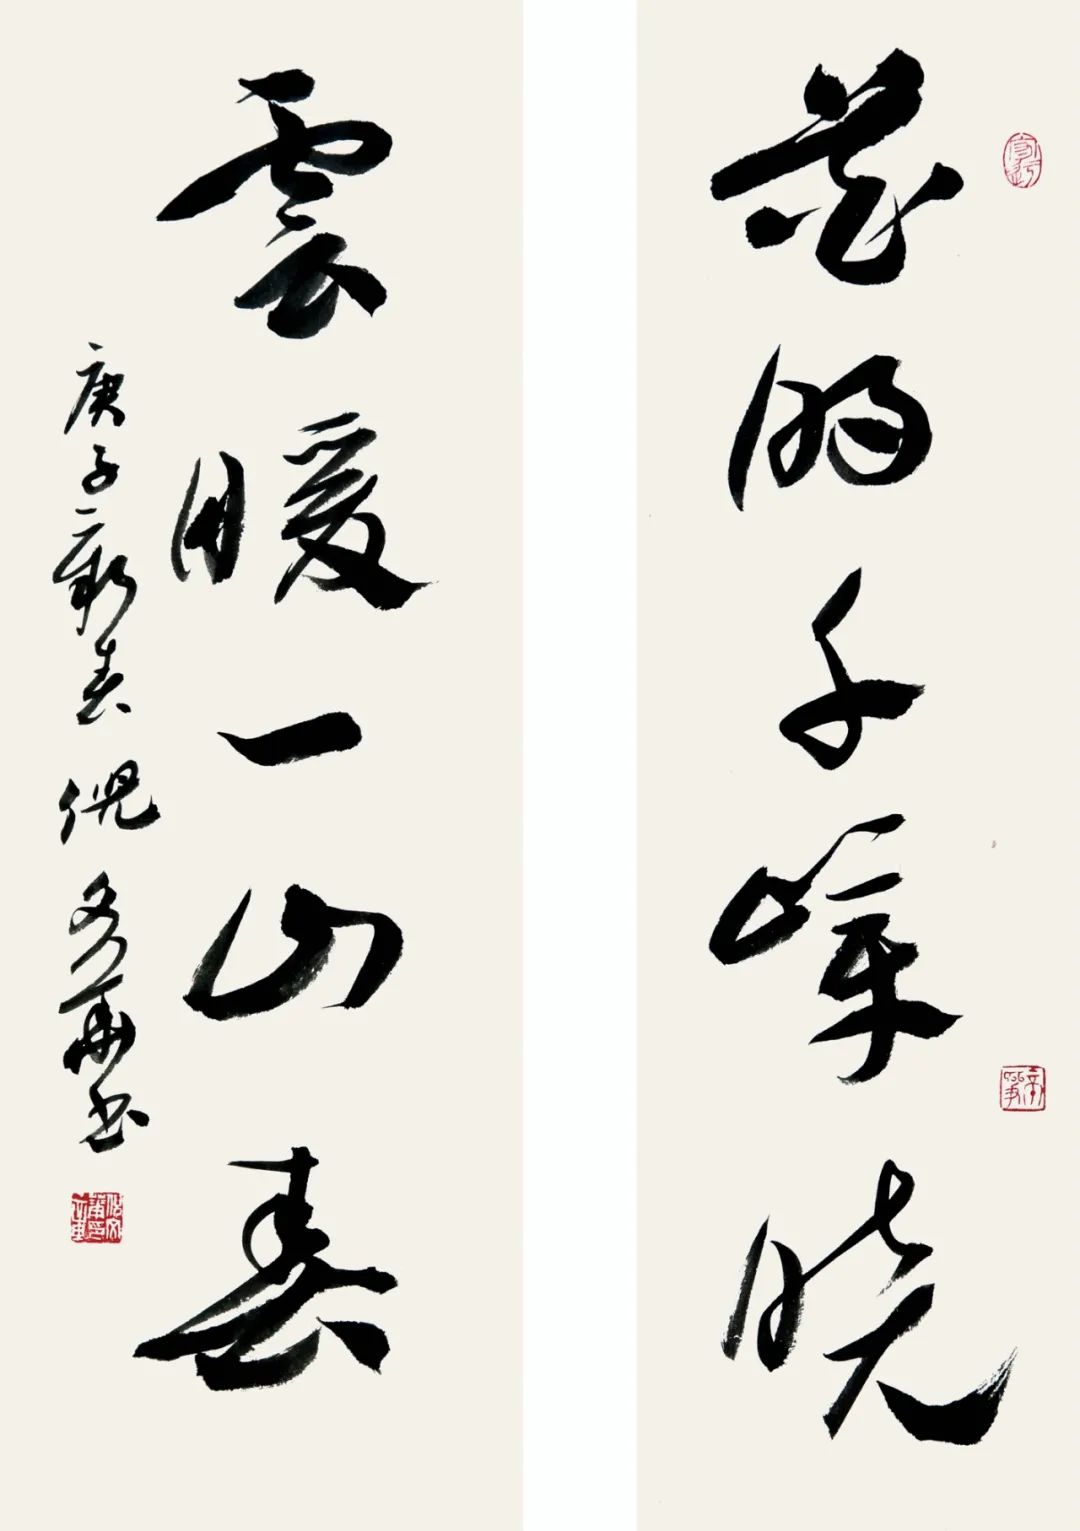 花明千峰晓
雲暖一山春
庚子新春 倪文華书